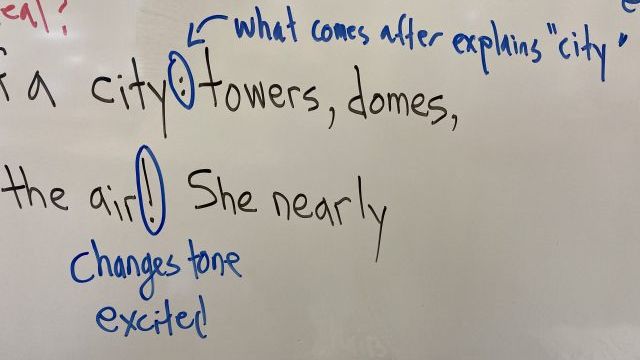 eal?
what comes after explains "city"
a city: towers, domes,
the air! She nearly
Changes tone
excited